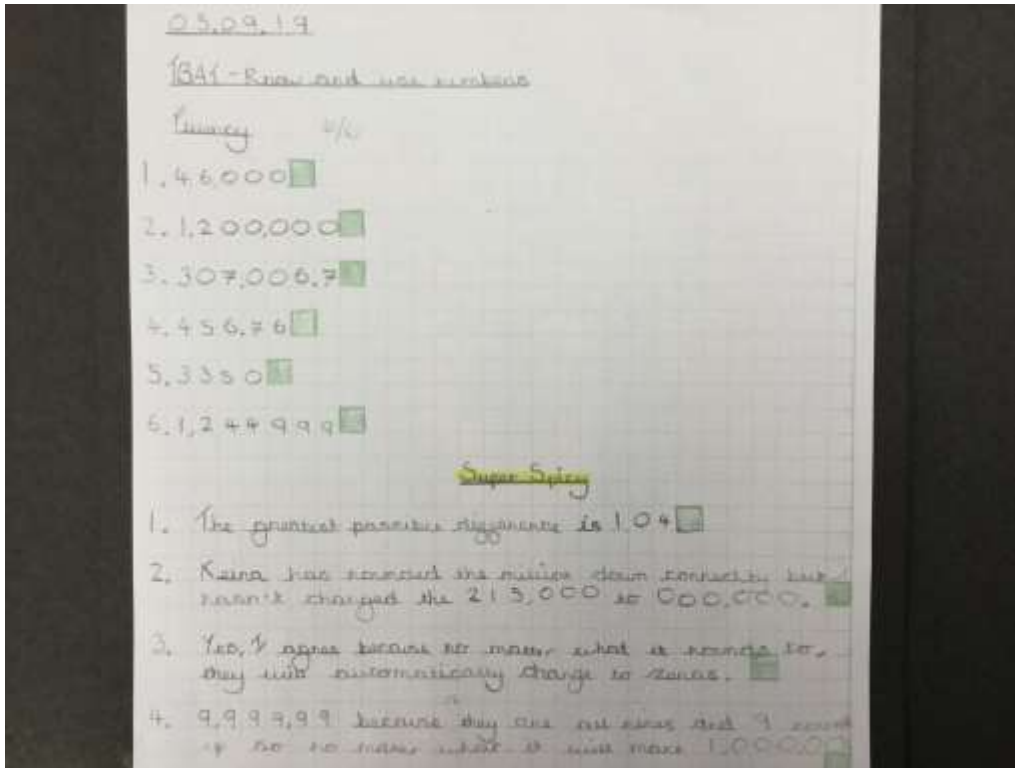 03.09.19
1BA1 - Know and use numbers
Fluency 6/6
1. 46,000
2. 1,200,000
3. 307,006.7
4. 456.76
5. 3350
6. 1,244999
Super Spicy
1. The greatest possible difference is 104
2. Keira has rounded the million down correctly but
hasn't changed the 213,000 to 000,000.
3. Yes, I agree because no matter what it rounds to,
they will automatically change to zeros.
4. 9,999,99 because they are all nines and 9 round
up so no matter what it will make 1,000,00